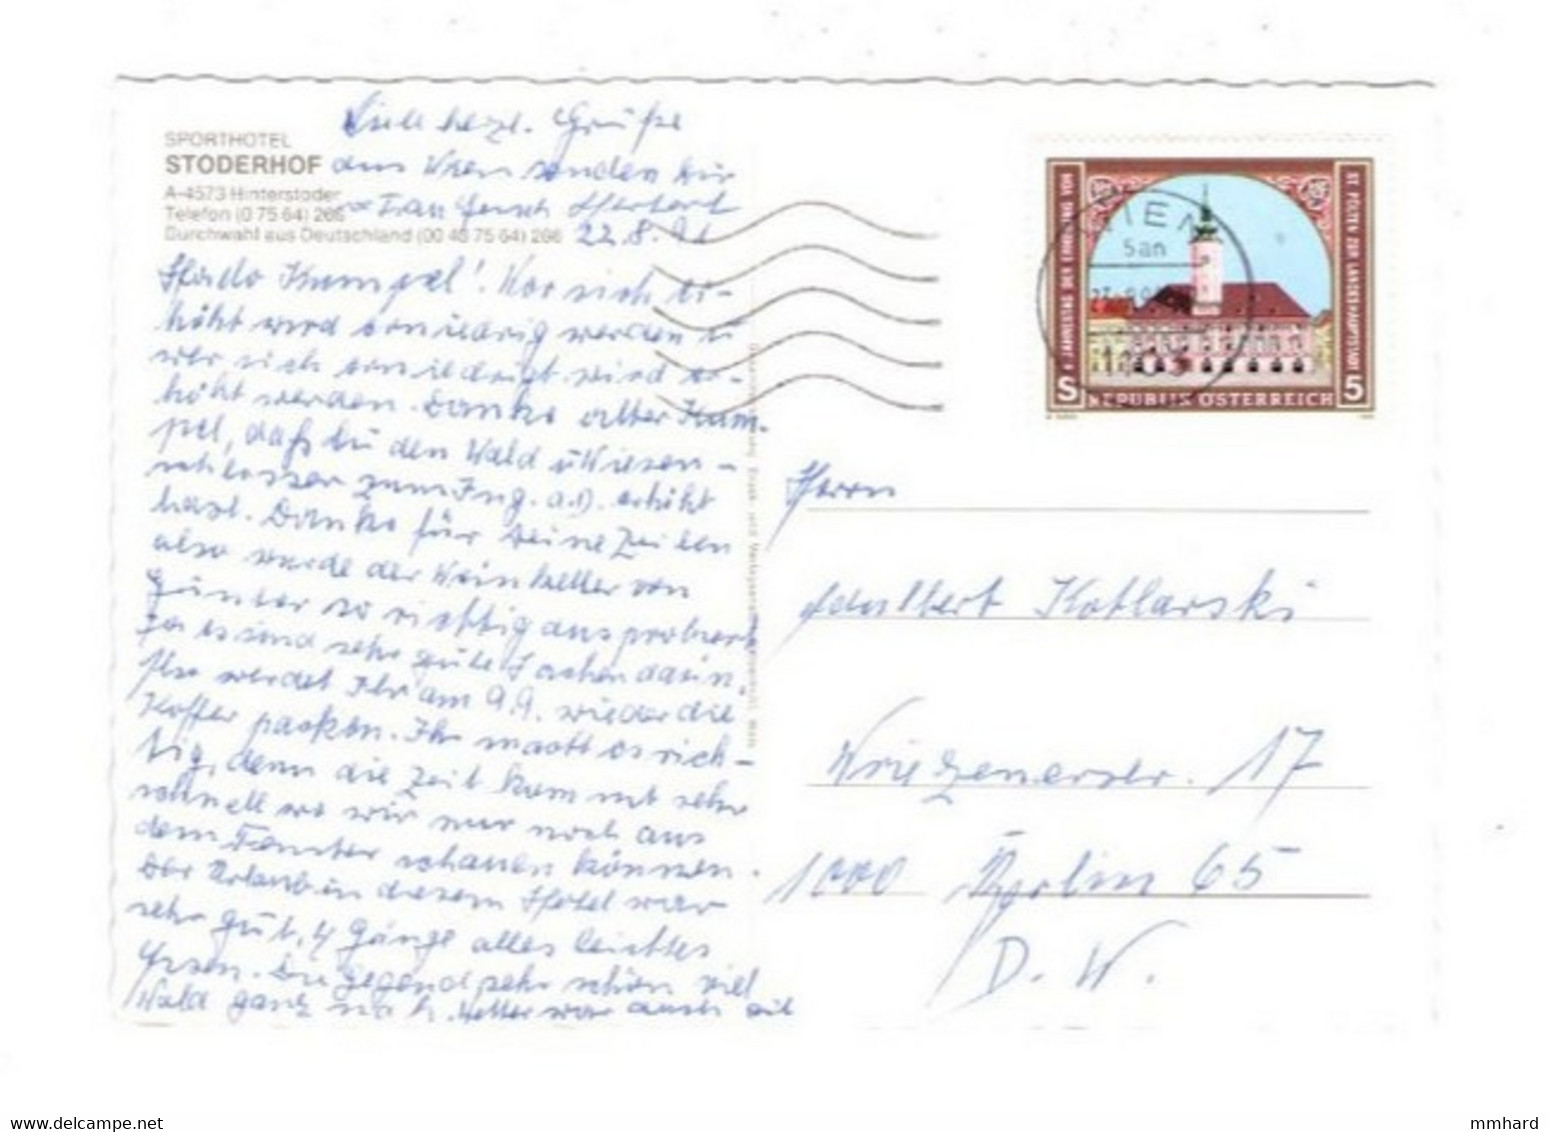 SPORTHOTEL
STODERHOF
A-4573 Hinterstoder
Telefon (0 75 64) 266
Durchwahl aus Deutschland (00 43 75 64) 266
Viele herzl. Grüße
aus Wien senden wir
22.8.91
Hado Kumpel! Wer sich er-
höht wird erniedrig werden u
wer sich erniedrigt wird er-
höht werden. Danke alter Kum-
pel, daß du den Wald u Wiesen-
schlosser zum Ing. a.D. erhöht
hast. Danke für Deine Zeilen
also wurde der Weinkeller von
Günter so richtig ausprobiert
ja es sind sehr gute Sachen darin.
Also werdet Ihr am 9.9. wieder die
Koffer packen. Ihr macht es rich-
tig, denn die Zeit kommt sehr
schnell wo wir nur noch aus
dem Fenster schauen können.
Der Urlaub in diesem Hotel war
sehr gut, 4 Gänge alles leichtes
Essen. Die Gegend sehr schön viel
Wald ganz nah. Wetter war auch
4. JAHRESTAG DER ERHEBUNG VON
ST. PÖLTEN ZUR LANDESHAUPTSTADT
S REPUBLIK ÖSTERREICH 5
WIEN
Herrn
Adalbert Kotlarski
Wriezenerstr. 17
1000 Berlin 65
D. W.
mmhard